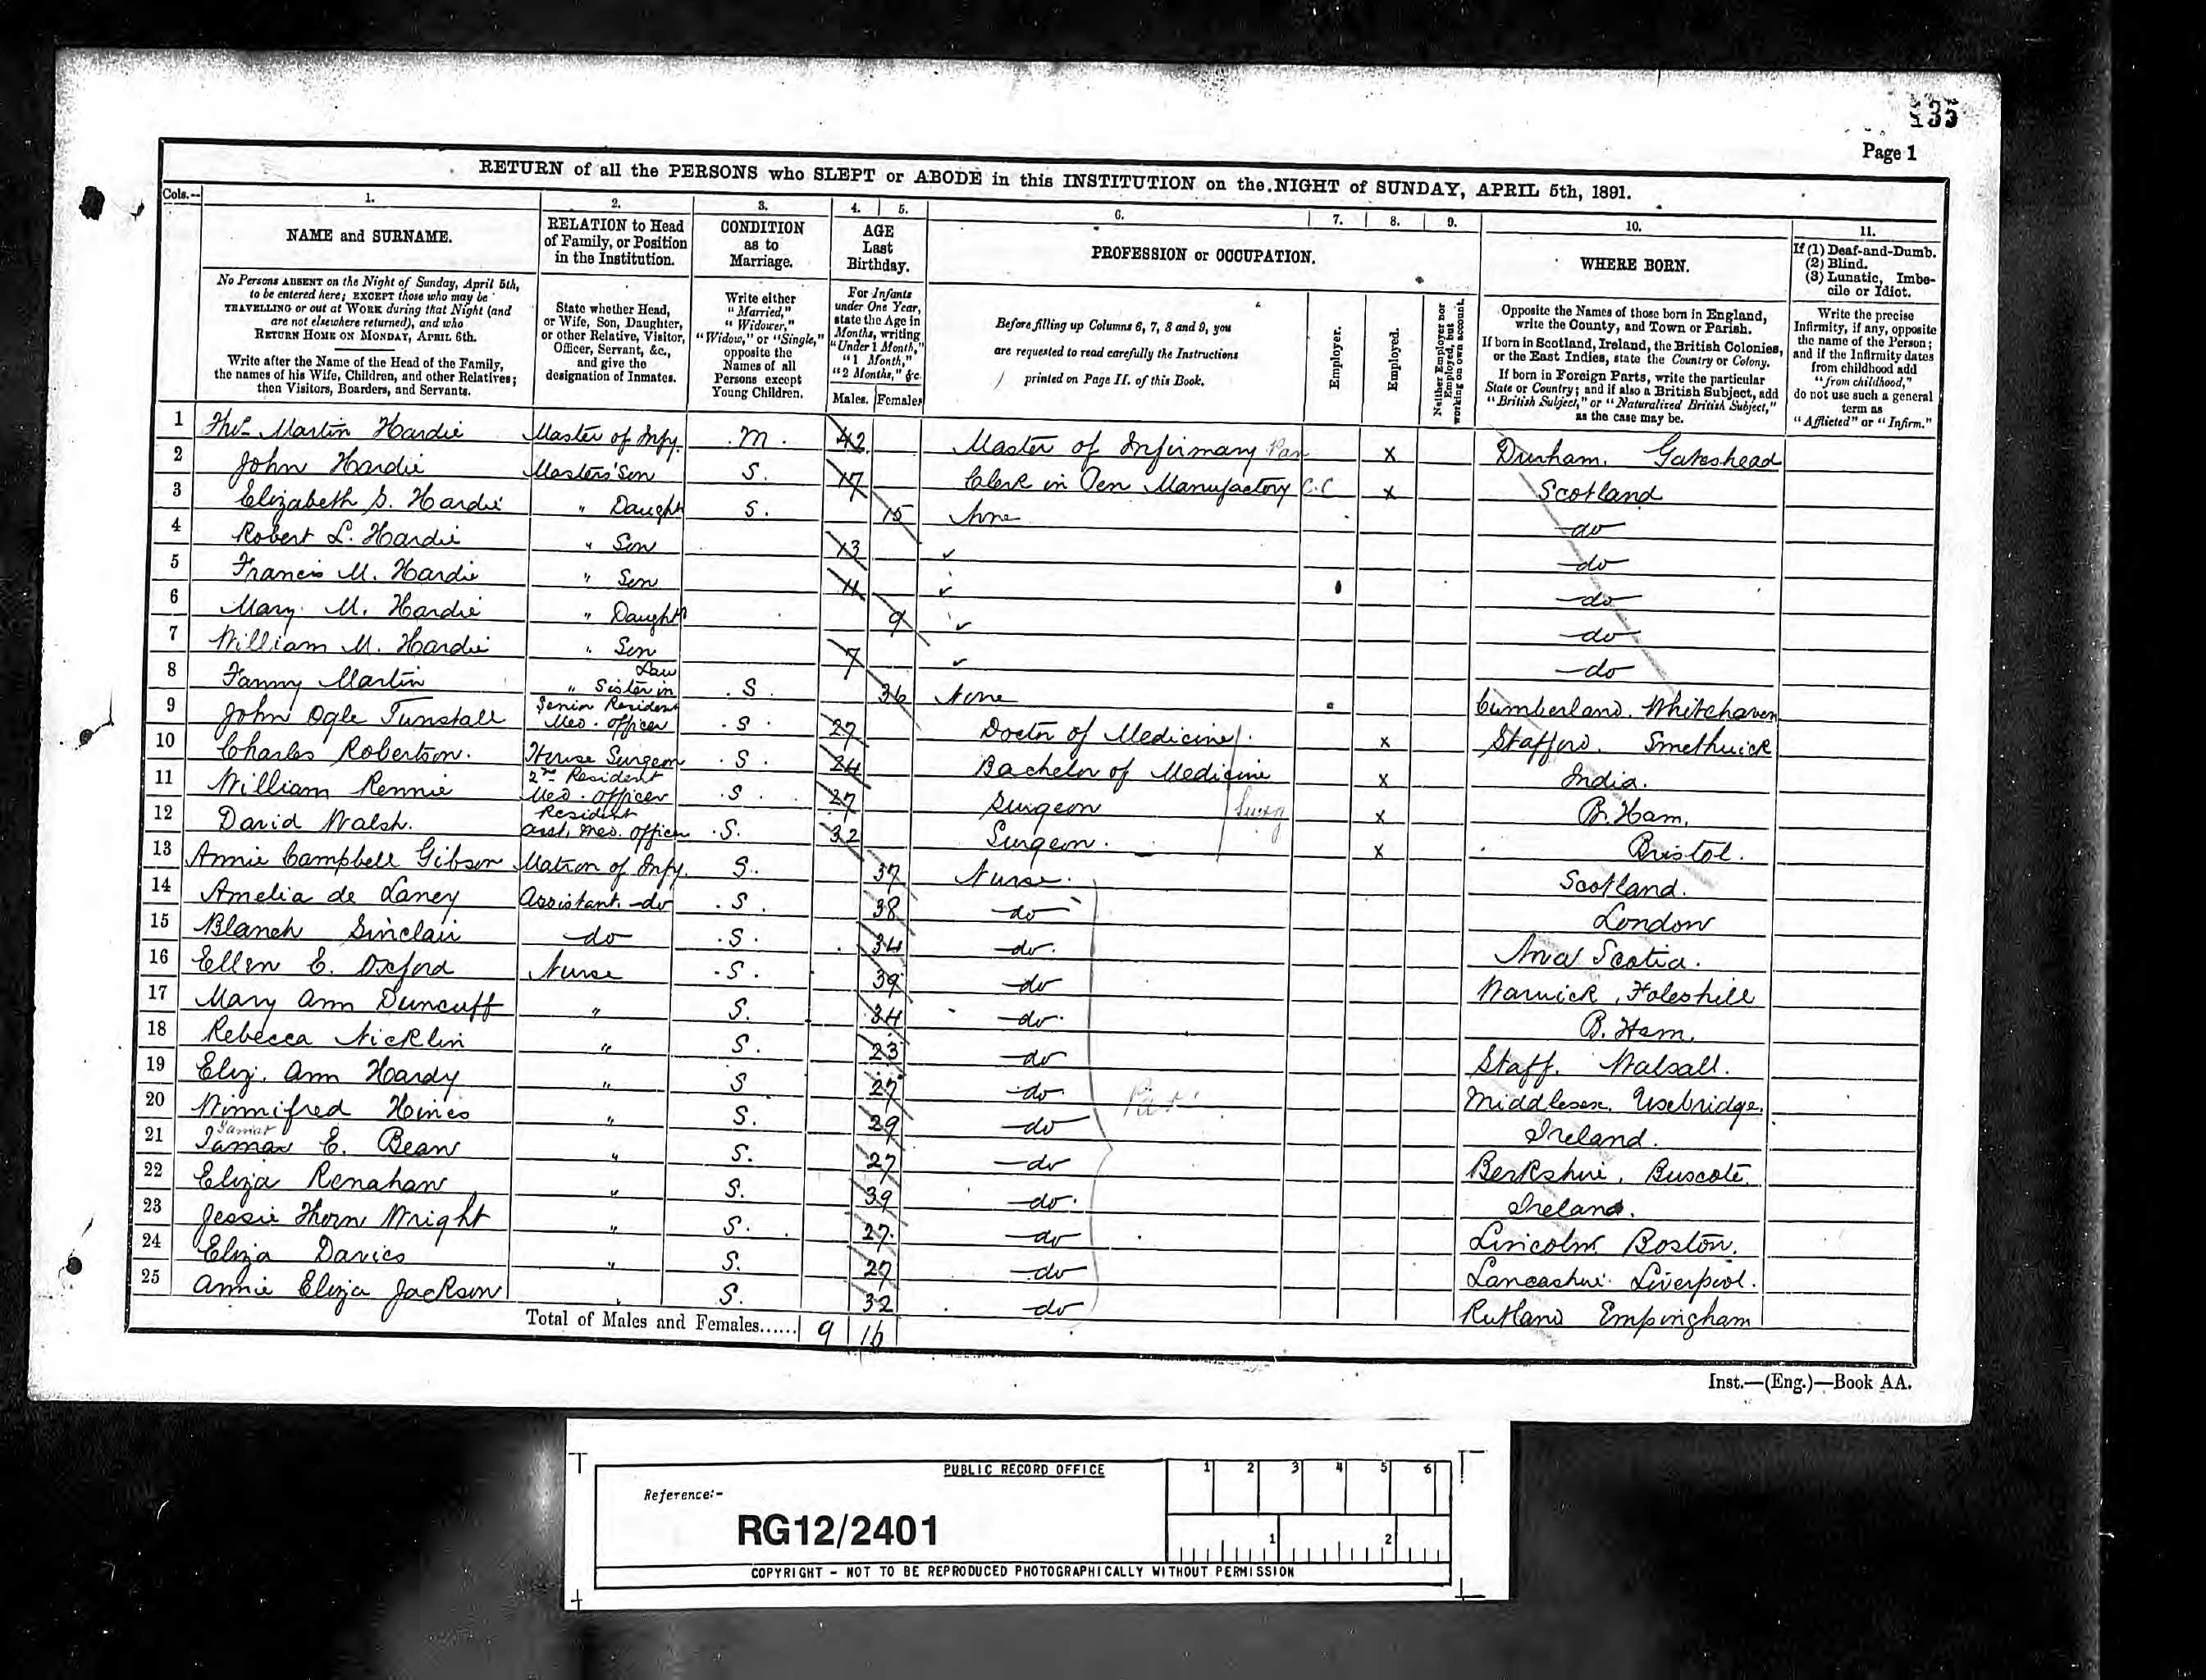 135
Page 1
RETURN of all the PERSONS who SLEPT or ABODE in this INSTITUTION on the NIGHT of SUNDAY, APRIL 5th, 1891.
Cols.— 1. 2. 3. 4. 5. 6. 7. 8. 9. 10. 11.
NAME and SURNAME.
No Persons ABSENT on the Night of Sunday, April 5th,
to be entered here; EXCEPT those who may be
TRAVELLING or out at WORK during that Night (and
are not elsewhere returned), and who
RETURN HOME ON MONDAY, APRIL 6th.
Write after the Name of the Head of the Family,
the names of his Wife, Children, and other Relatives;
then Visitors, Boarders, and Servants.
RELATION to Head
of Family, or Position
in the Institution.
State whether Head,
or Wife, Son, Daughter,
or other Relative, Visitor,
Officer, Servant, &c.,
and give the
designation of Inmates.
CONDITION
as to
Marriage.
Write either
"Married,"
"Widower,"
"Widow," or "Single,"
opposite the
Names of all
Persons except
Young Children.
AGE
Last
Birthday.
For Infants
under One Year,
state the Age in
Months, writing
"Under 1 Month,"
"1 Month,"
"2 Months," &c.
Males. Females
PROFESSION or OCCUPATION.
Before filling up Columns 6, 7, 8 and 9, you
are requested to read carefully the Instructions
printed on Page II. of this Book.
Employer.
Employed.
Neither Employer nor
Employed, but
working on own account.
WHERE BORN.
Opposite the Names of those born in England,
write the County, and Town or Parish.
If born in Scotland, Ireland, the British Colonies,
or the East Indies, state the Country or Colony.
If born in Foreign Parts, write the particular
State or Country; and if also a British Subject, add
"British Subject," or "Naturalized British Subject,"
as the case may be.
If (1) Deaf-and-Dumb.
(2) Blind.
(3) Lunatic, Imbe-
cile or Idiot.
Write the precise
Infirmity, if any, opposite
the name of the Person;
and if the Infirmity dates
from childhood add
"from childhood,"
do not use such a general
term as
"Afflicted" or "Infirm."
1 Thos Martin Hardie Master of Infy. M. 42 Master of Infirmary Pau x Durham. Gateshead
2 John Hardie Masters' Son S. 17 Clerk in Pen Manufactory C.C x Scotland
3 Elizabeth S. Hardie " Daughr S. 15 None do
4 Robert L. Hardie " Son 13 ✓ do
5 Francis M. Hardie " Son 11 ✓ do
6 Mary M. Hardie " Daughtr 9 ✓ do
7 William M. Hardie " Son 7 ✓ do
8 Fanny Martin " Sister in Law S 36 None Cumberland. Whitehaven
9 John Ogle Tunstall Senior Resident Med. Officer S 27 Doctor of Medicine x Stafford. Smethwick
10 Charles Robertson. House Surgeon S. 24 Bachelor of Medicine x India.
11 William Rennie 2nd Resident Med. Officer S. 27 Surgeon Surg x B.Ham.
12 David Walsh. Resident asst. Med. Officer S. 32 Surgeon. x Bristol.
13 Annie Campbell Gibson Matron of Infy. S. 37 Nurse. Scotland.
14 Amelia de Laney Assistant do S. 38 do London
15 Blanch Sinclair do S. 34 do. Nova Scotia.
16 Ellen E. Oxford Nurse S. 39 do Warwick, Foleshill
17 Mary Ann Duncuff " S. 34 do. B.Ham.
18 Rebecca Nicklin " S. 23 do Staff. Walsall.
19 Eliz. Ann Hardy " S 27 do Middlesex. Uxbridge.
20 Winnifred Hines " S. 29 do Ireland.
Tamar
21 Tamar E. Bean " S. 27 do Berkshire. Buscote.
22 Eliza Renahan " S. 39 do. Ireland.
23 Jessie Thorn Wright " S. 27. do Lincoln Boston.
24 Eliza Davies " S. 27 do Lancashire Liverpool.
25 Annie Eliza Jackson " S. 32 do Rutland Empingham
Total of Males and Females...... 9 16
Inst.—(Eng.)—Book AA.
PUBLIC RECORD OFFICE
1 2 3 4 5 6
Reference:-
RG12/2401
1 2
COPYRIGHT - NOT TO BE REPRODUCED PHOTOGRAPHICALLY WITHOUT PERMISSION